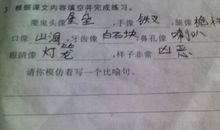 3 根据课文内容填空并完成练习。
魔鬼头像星星,手像铁叉,腿像桅杆
口像山洞,牙齿像白石块,鼻孔像喇叭
眼睛像灯笼,样子非常凶恶
请你模仿着写一个比喻句。